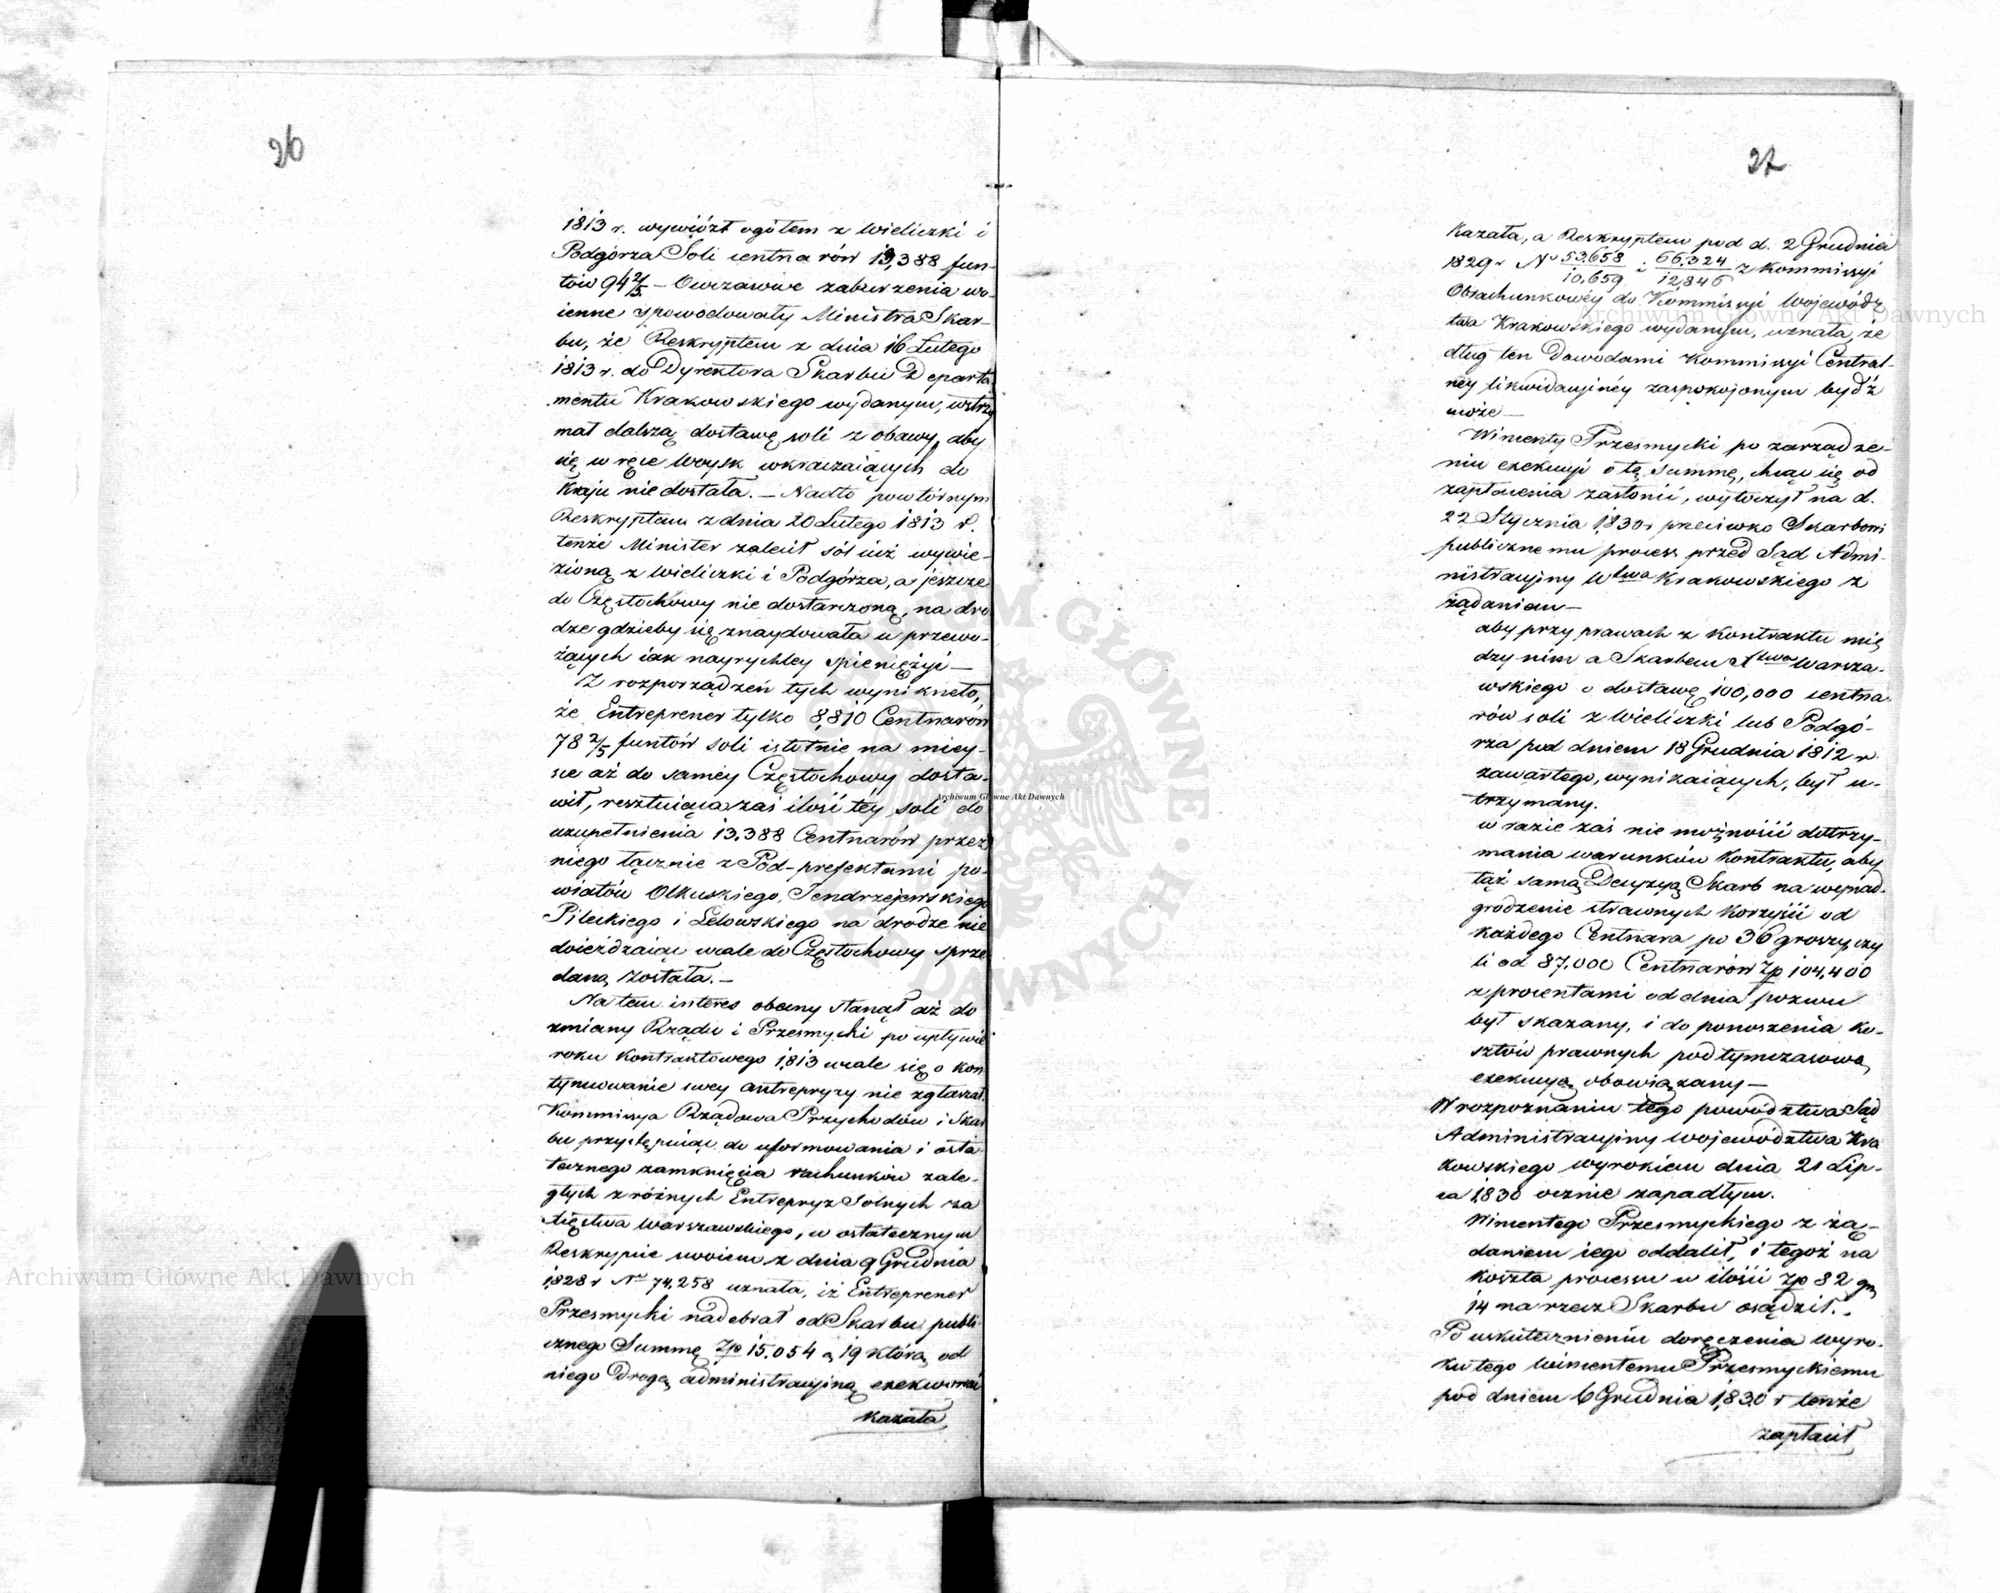 26
1813 r. wywiózł ogółem z Wieliczki i
Podgórza Soli centnarów 13,388 fun-
tów 94 2/5 — Owczasowe zaburzenia wo-
ienne spowodowały Ministra Skar-
bu, że Reskryptem z dnia 16 Lutego
1813 r. do Dyrektora Skarbu Departa
mentu Krakowskiego wydanym, wstrzy
mał dalszą dostawę soli z obawy, aby
się w ręce Woysk wkraczaiących do
Kraju nie dostała. — Nadto powtórnym
Reskryptem z dnia 20 Lutego 1813 r.
tenże Minister zalecił sól iuż wywie-
zioną z Wieliczki i Podgórza, a jeszcze
do Częstochowy nie dostarczoną, na dro
dze gdzieby się znaydowała u przewo-
żących iak nayrychley spieniężyć —
Z rozporządzeń tych wyniknęło,
że Entreprener tylko 8,810 Centnarów
78 2/5 funtów soli istotnie na miey-
sce aż do saméy Częstochowy dosta-
wił, resztuiąca zaś ilość téy soli do
uzupełnienia 13,388 Centnarów przez
niego łącznie z Pod-prefektami po-
wiatów Olkuskiego, Jendrzejewskiego
Pileckiego i Lelowskiego na drodze nie
doieżdzaiąc wcale do Częstochowy sprze
daną została. —
Na tem interes obecny stanął aż do
zmiany Rządu i Przesmycki po upływie
roku kontraktowego 1813 wcale się o kon
tynuowanie swey antrepryzy nie zgłaszał.
Kommissya Rządowa Przychodów i Skar
bu przystępuiąc do uformowania i osta
tecznego zamknięcia rachunków zale-
głych z różnych Entrepryz Solnych za
Xięstwa Warszawskiego, w ostatecznym
Reskrypcie swoiem z dnia 9 Grudnia
1828 r No 74,258 uznała, iż Entreprener
Przesmycki nadebrał od Skarbu publi-
cznego Summę Zp 15.054 g 19 którą od
niego drogą administracyjną exekwować
kazała
27
kazała, a Reskryptem pod d. 2 Grudnia
1829 r No 53.658/10,659 i 66.324/12,846 z Kommissyi
Obrachunkowéy do Kommissyi Wojewódz
twa Krakowskiego wydanym, uznała, że
dług ten Dowodami Kommissyi Central-
néy likwidacyinéy zaspokojonym bydź
może —
Wincenty Przesmycki po zarządze-
niu exekucyi o tę summę, chcąc się od
zapłacenia zasłonić, wytoczył na d.
22 Stycznia 1830 r przeciwko Skarbowi
publicznemu process przed Sąd Admi-
nistracyjny Wtwa Krakowskiego z
żądaniem —
aby przy prawach z Kontraktu mię
dzy nim a Skarbem Xtwa Warsza-
wskiego o dostawę 100,000 centna
rów soli z Wieliczki lub Podgó-
rza pod dniem 18 Grudnia 1812 r
zawartego, wynikaiących, był u-
trzymany.
w razie zaś nie możności dotrzy-
mania warunków Kontraktu, aby
tąż samą Decyzyą Skarb na wynad-
grodzenie straconych korzyści od
każdego Centnara po 36 groszy, czy
li od 87,000 Centnarów Zp 104,400
z procentami od dnia pozwu
był skazany, i do ponoszenia ko-
sztów prawnych pod tymczasową
exekucyą obowiązany —
W rozpoznaniu tego powództwa Sąd
Administracyjny Województwa Kra
kowskiego wyrokiem dnia 21 Lip-
ca 1830 ocznie zapadłym.
Wincentego Przesmyckiego z żą-
daniem iego oddalił, i tegoż na
koszta processu w ilości Zp 82 gr
14 na rzecz Skarbu osądził.
Po uskutecznieniu doręczenia wyro-
ku tego Wincentemu Przesmyckiemu
pod dniem 6 Grudnia 1830 r tenże
zapłacił
Archiwum Główne Akt Dawnych
Archiwum Główne Akt Dawnych
Archiwum Główne Akt Dawnych